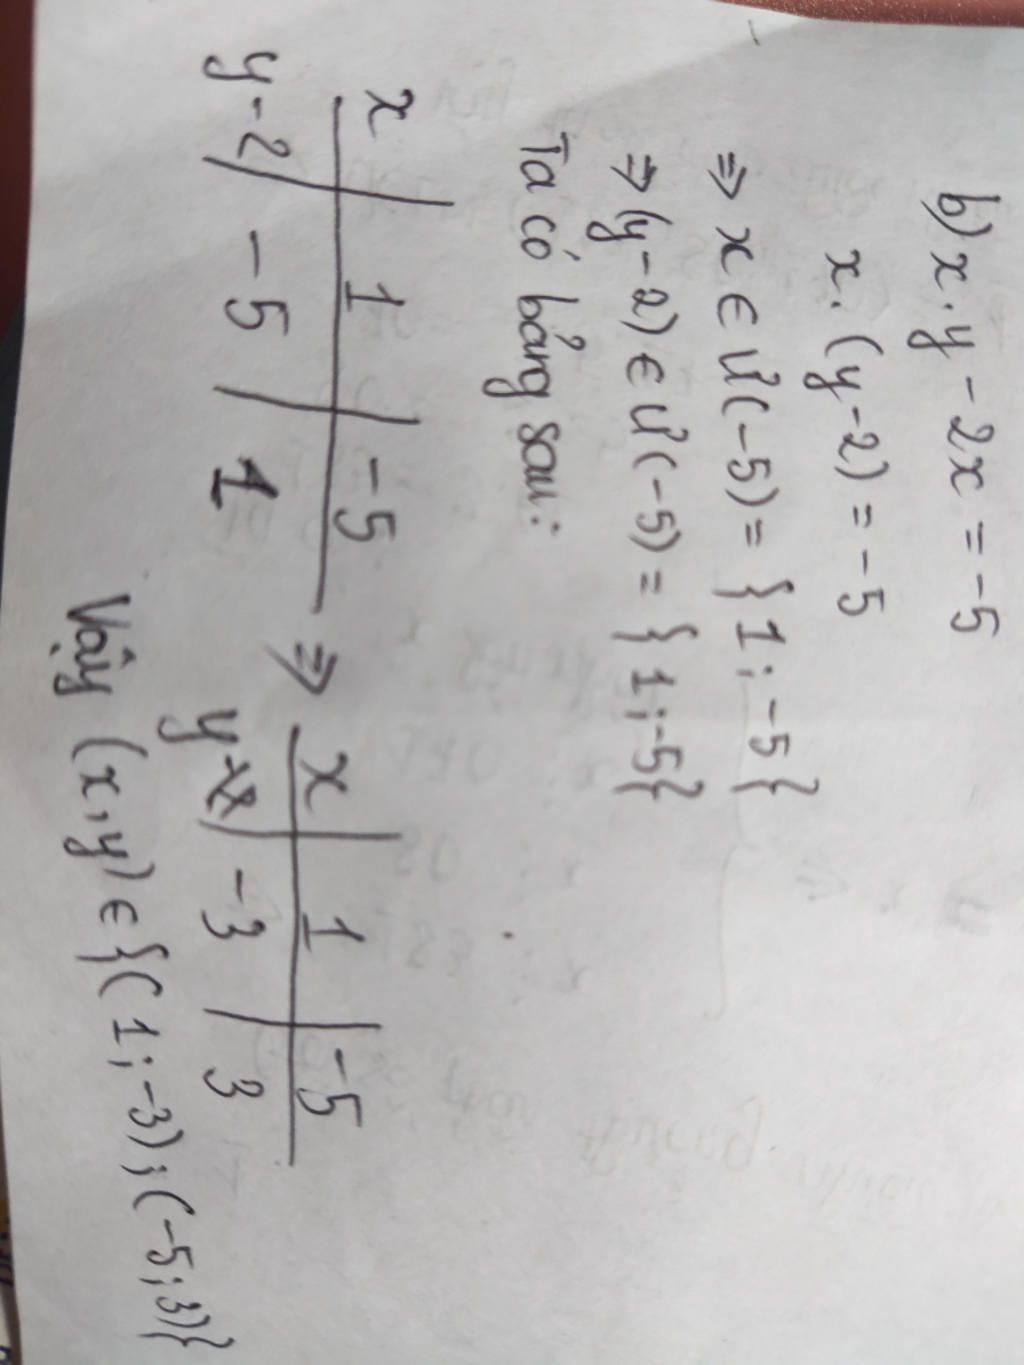 b) x.y - 2x = -5
x.(y-2) = -5
⇒ x ∈ Ư(-5) = {1; -5}
⇒ (y-2) ∈ Ư(-5) = {1; -5}
Ta có bảng sau:
x | 1 | -5
y-2 | -5 | 1
⇒
x | 1 | -5
y | -3 | 3
Vậy (x,y) ∈ {(1;-3);(-5;3)}